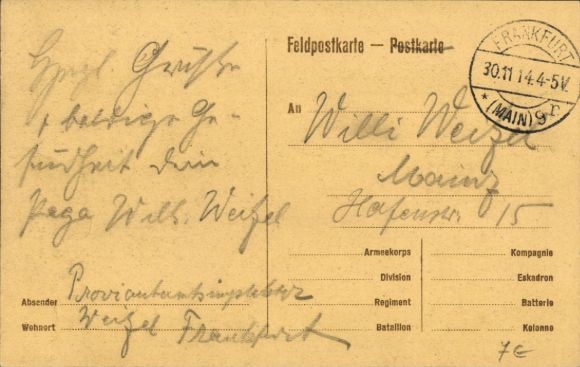 Feldpostkarte — Postkarte
FRANKFURT
30.11 14.4-5V.
* (MAIN) 9 r.
Herzl. Grüße
+ baldige Ge-
sundheit dein
Papa Wilh. Weitzel
An Willi Weitzel
Mainz
Hafenstr. 15
Armeekorps
Division
Regiment
Bataillon
Kompagnie
Eskadron
Batterie
Kolonne
Absender
Wohnort Weitzel Frankfurt
7€